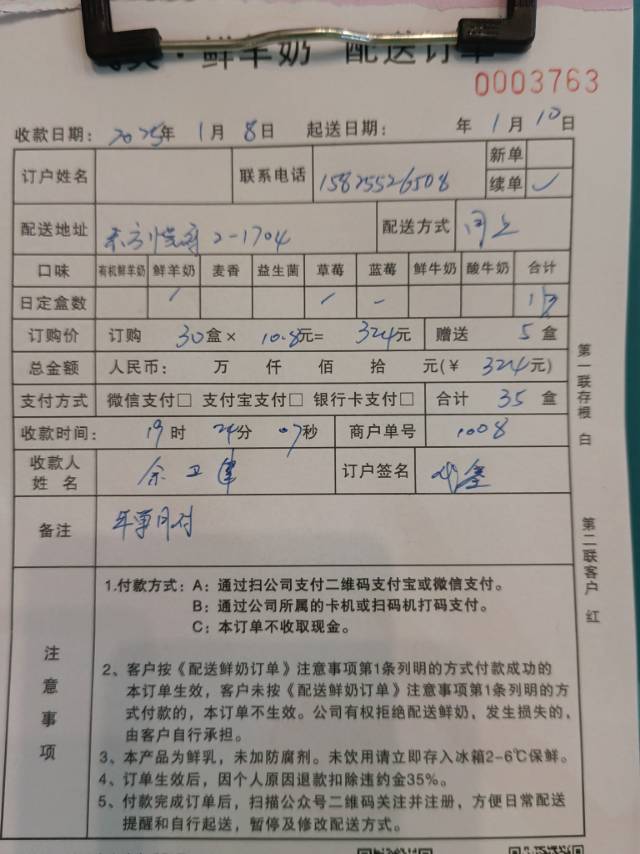 ·鲜羊奶 配送订单
0003763
收款日期：2025年 1月 8日 起送日期： 年 1月 10日
订户姓名 联系电话 15825526508 新单
续单 ✓
配送地址 2-1704 配送方式 同上
口味 有机鲜羊奶 鲜羊奶 麦香 益生菌 草莓 蓝莓 鲜牛奶 酸牛奶 合计
日定盒数
订购价 订购 30盒× 10.8元= 324元 赠送 5盒
总金额 人民币： 万 仟 佰 拾 元(¥ 324元)
支付方式 微信支付□ 支付宝支付□ 银行卡支付□ 合计 35 盒
收款时间： 19时 24分 07秒 商户单号 1008
收款人姓名 余卫建 订户签名
备注 年事月付
注意事项
1.付款方式：A：通过扫公司支付二维码支付宝或微信支付。
B：通过公司所属的卡机或扫码机打码支付。
C：本订单不收取现金。
2、客户按《配送鲜奶订单》注意事项第1条列明的方式付款成功的
本订单生效，客户未按《配送鲜奶订单》注意事项第1条列明的方
式付款的，本订单不生效。公司有权拒绝配送鲜奶，发生损失的，
由客户自行承担。
3、本产品为鲜乳，未加防腐剂。未饮用请立即存入冰箱2-6℃保鲜。
4、订单生效后，因个人原因退款扣除违约金35%。
5、付款完成订单后，扫描公众号二维码关注并注册，方便日常配送
提醒和自行起送，暂停及修改配送方式。
第一联存根 白
第二联客户 红